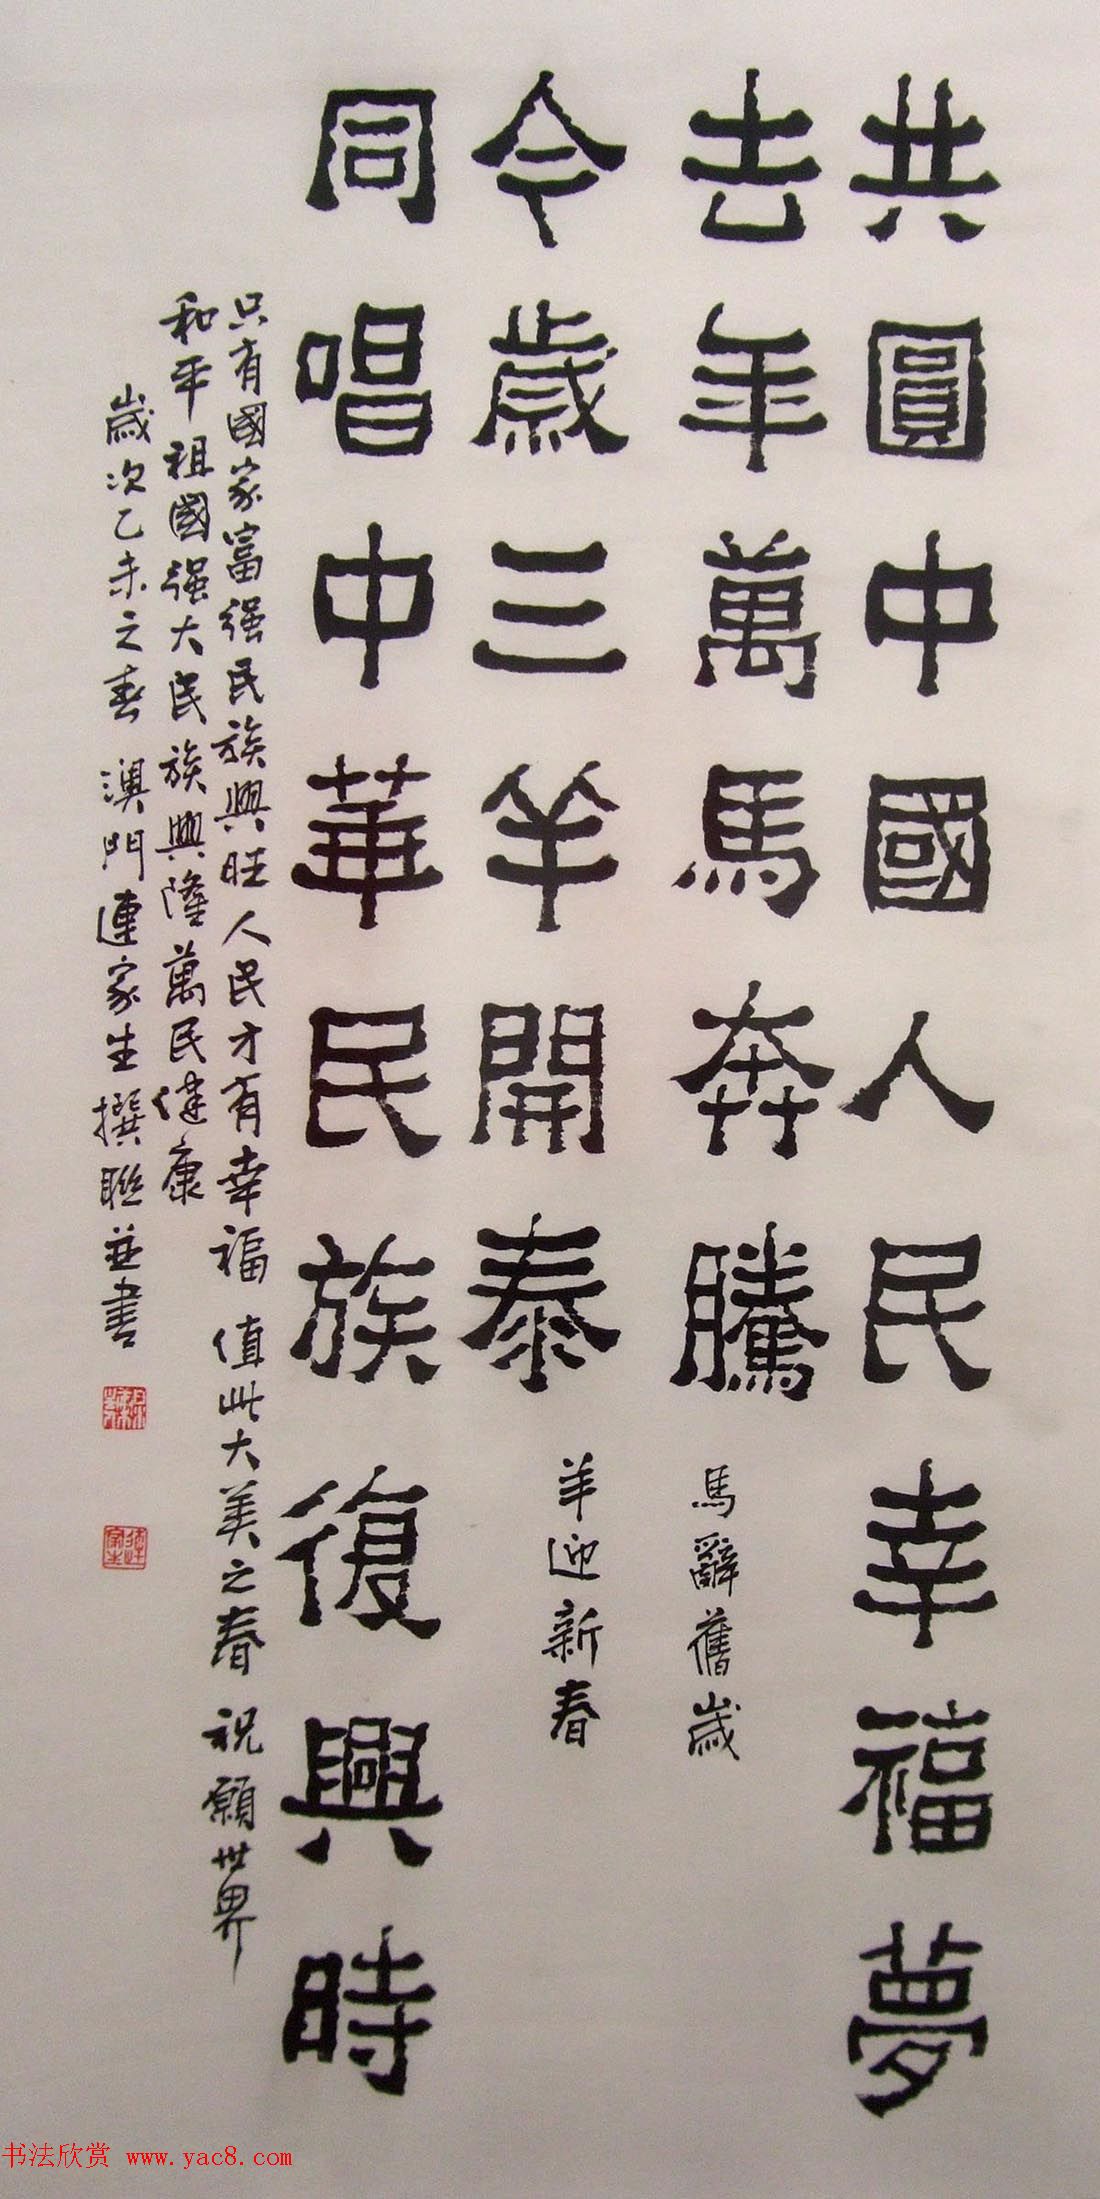 共圓中國人民幸福夢
去年萬馬奔騰
馬辭舊歲
今歲三羊開泰
羊迎新春
同唱中華民族復興時
只有國家富强民族興旺人民才有幸福 值此大美之春 祝願世界
和平祖國强大民族興隆萬民健康
歲次乙未之春 澳門連家生撰聯並書
书法欣赏 www.yac8.com